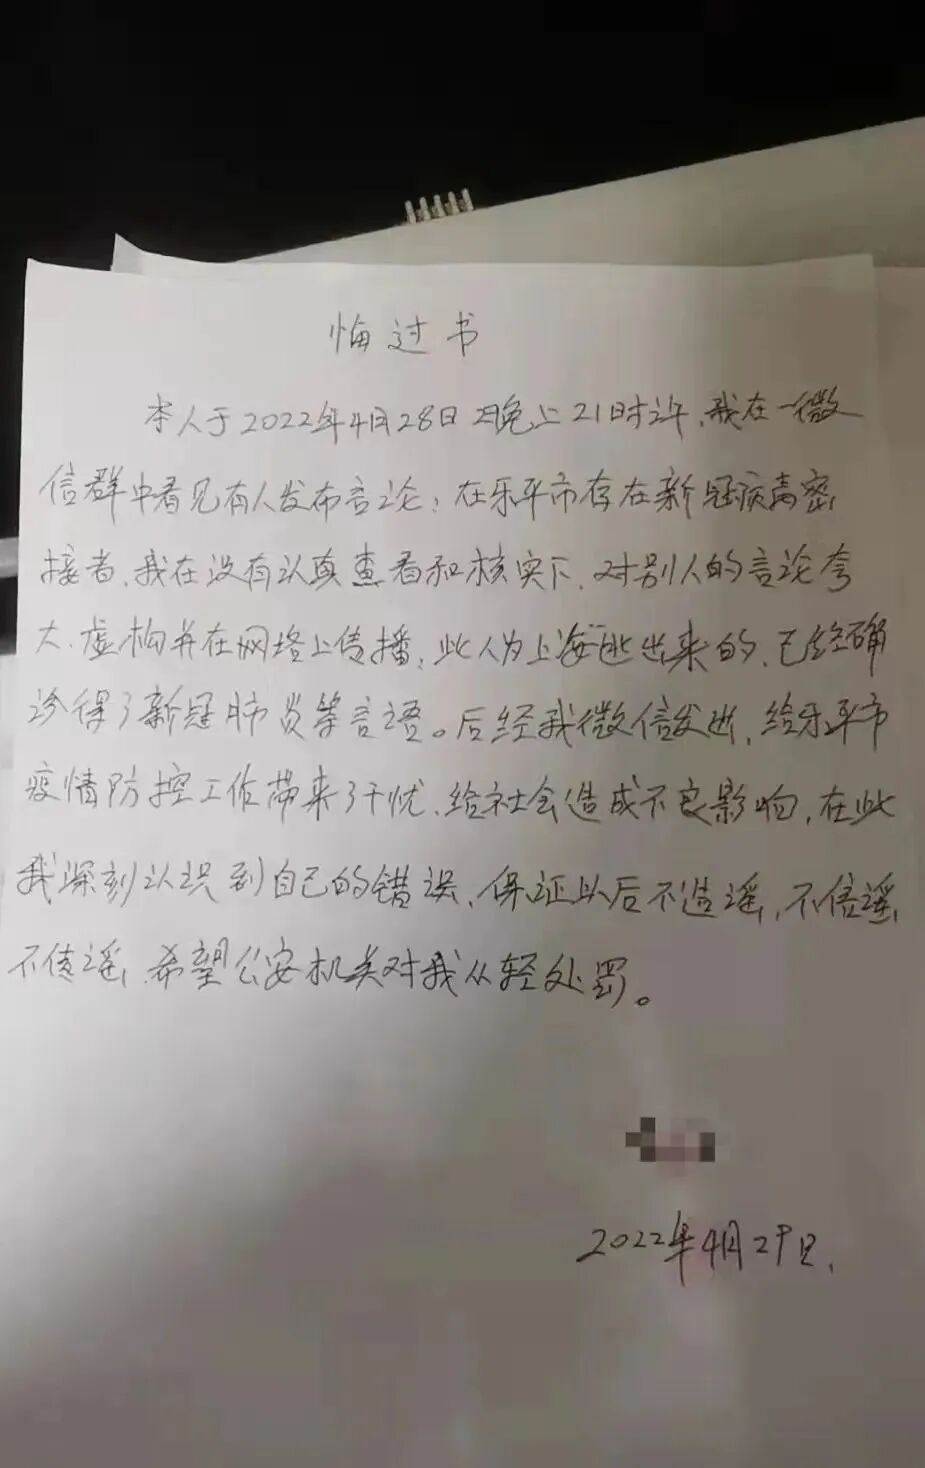 悔过书
本人于2022年4月28日晚上21时许,我在一微
信群中看见有人发布言论:在乐平市存在新冠病毒密
接者,我在没有认真查看和核实下,对别人的言论夸
大、虚构并在网络上传播,此人为上海逃出来的,已经确
诊得了新冠肺炎等言语。后经我微信发出,给乐平市
疫情防控工作带来了干忧,给社会造成不良影响,在此
我深刻认识到自己的错误,保证以后不造谣,不信谣,
不传谣,希望公安机关对我从轻处罚。
2022年4月29日.